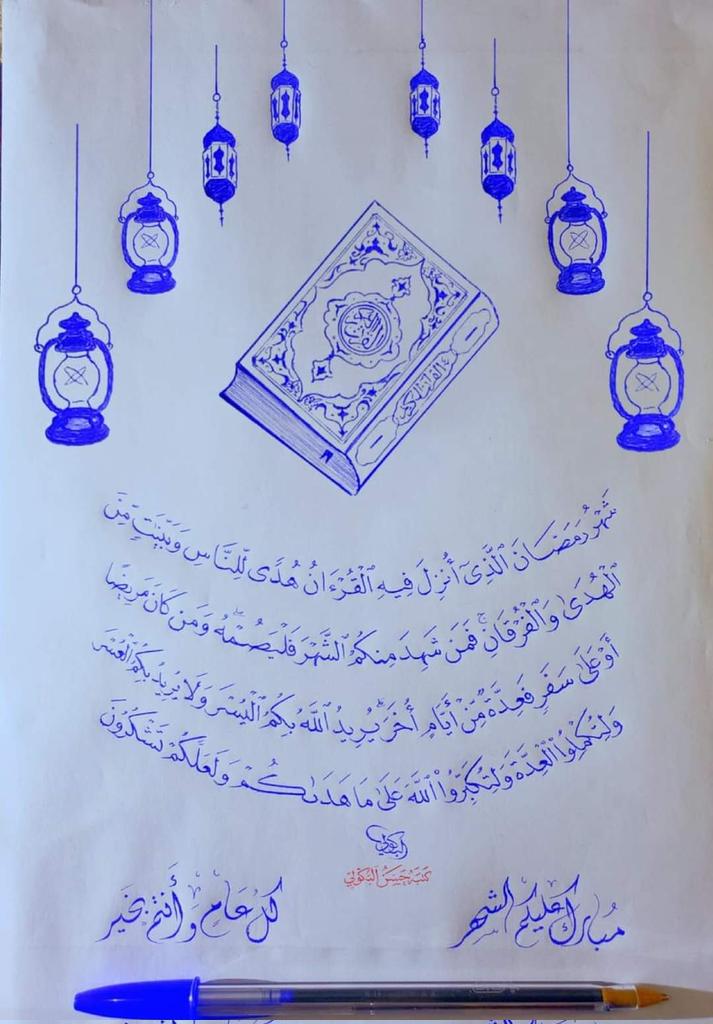 القرآن الكريم
القرآن الكريم
شَهْرُ رَمَضَانَ الَّذِىٓ أُنزِلَ فِيهِ الْقُرْءَانُ هُدًى لِّلنَّاسِ وَبَيِّنَٰتٍ مِّنَ
الْهُدَىٰ وَالْفُرْقَانِ ۚ فَمَن شَهِدَ مِنكُمُ الشَّهْرَ فَلْيَصُمْهُ ۖ وَمَن كَانَ مَرِيضًا
أَوْ عَلَىٰ سَفَرٍ فَعِدَّةٌ مِّنْ أَيَّامٍ أُخَرَ ۗ يُرِيدُ اللَّهُ بِكُمُ الْيُسْرَ وَلَا يُرِيدُ بِكُمُ الْعُسْرَ
وَلِتُكْمِلُوا الْعِدَّةَ وَلِتُكَبِّرُوا اللَّهَ عَلَىٰ مَا هَدَىٰكُمْ وَلَعَلَّكُمْ تَشْكُرُونَ
كتبه حسن البكولي
مُبارك عليكم الشهر
كل عام وأنتم بخير